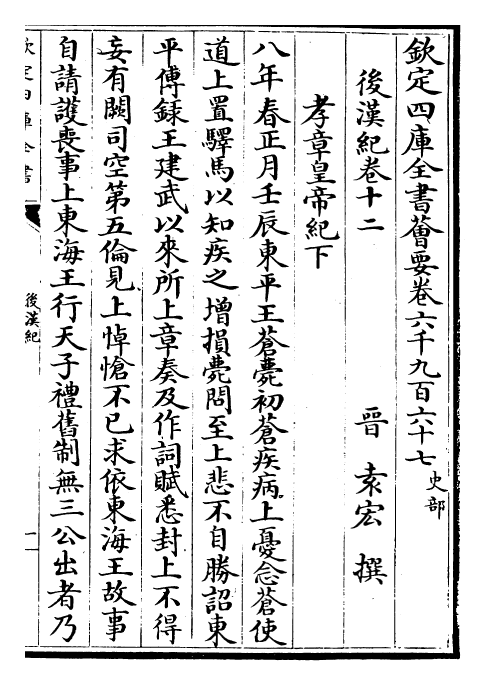 欽定四庫全書薈要卷六千九百六十七史部
後漢紀卷十二　晉　袁宏　撰
孝章皇帝紀下
八年春正月壬辰東平王蒼薨初蒼疾病上憂念蒼使
道上置驛馬以知疾之增損薨問至上悲不自勝詔東
平傅録王建武以來所上章奏及作詞賦悉封上不得
妄有闕司空第五倫見上悼愴不已求依東海王故事
自請護喪事上東海王行天子禮舊制無三公出者乃
欽定四庫全書
後漢紀
一